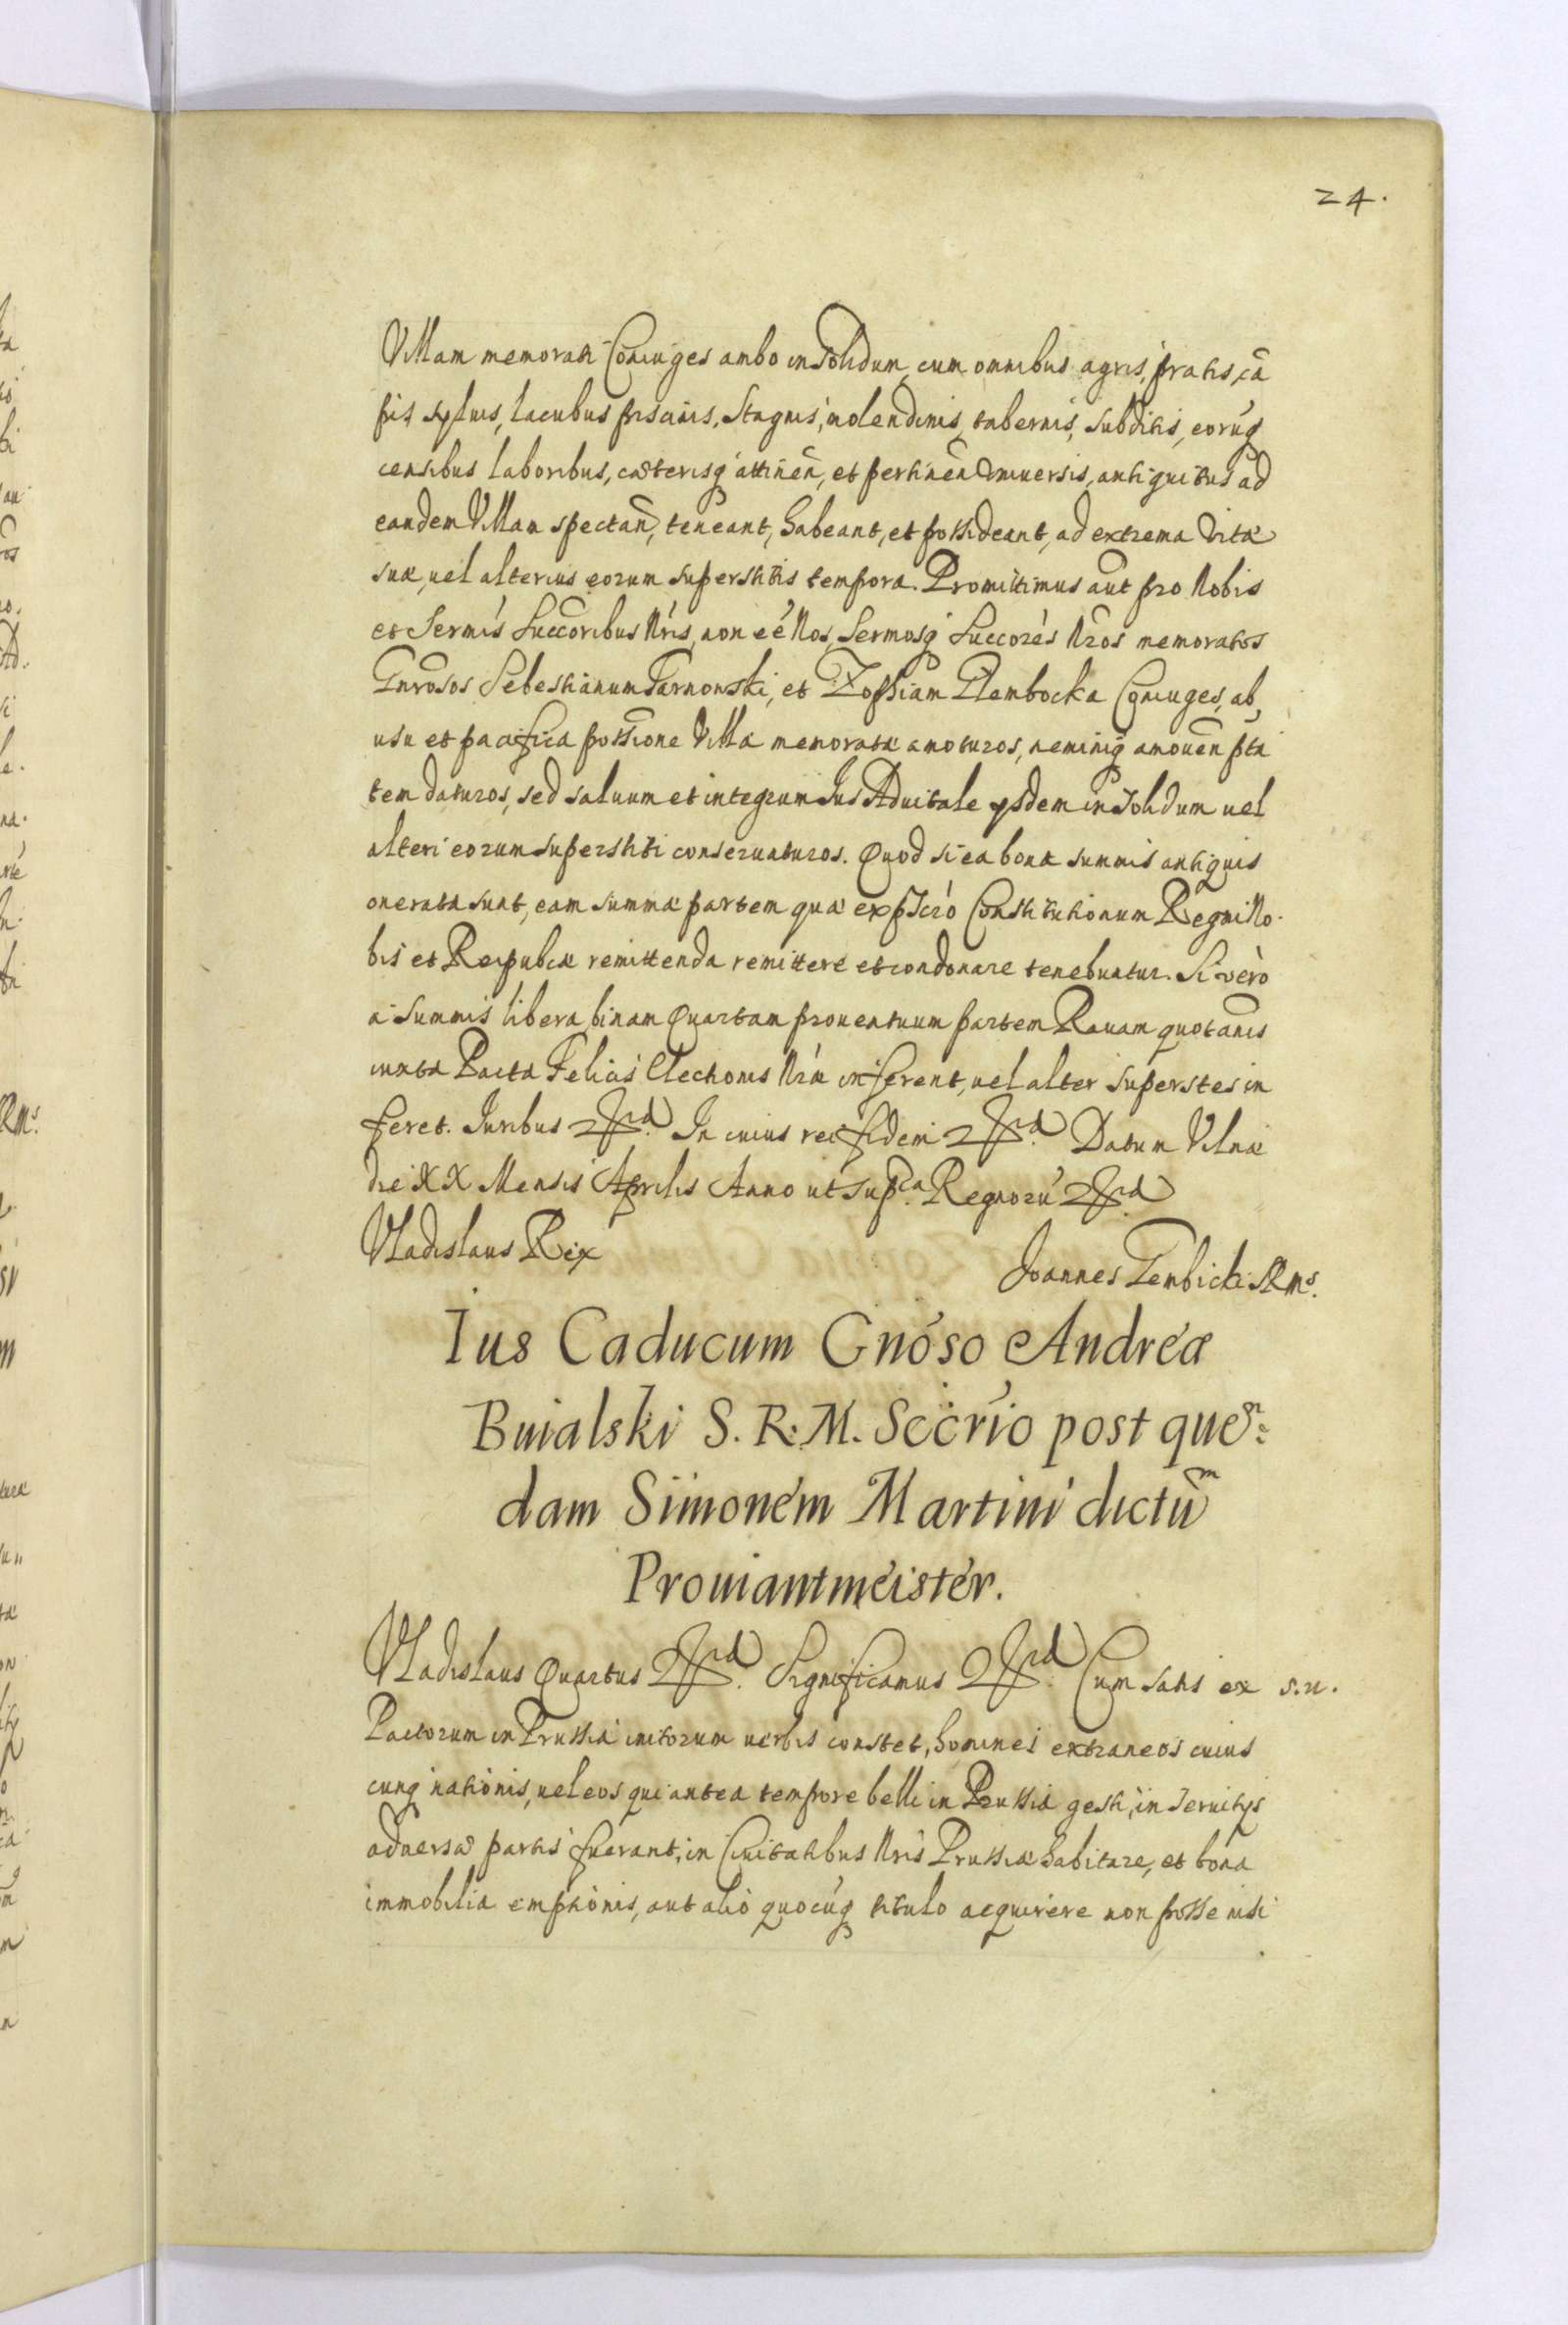 24.
Villam memorati Coniuges ambo in Solidum, cum omnibus agris, pratis, cã
pis, syluis, lacubus piscinis, Stagnis, molendinis, tabernis, subditis, eorúq
censibus laboribus, cæterisq attinẽn, et pertinẽn Vniuersis, antiquitus ad
eandem Villam spectañ, teneant, habeant, et possideant, ad extrema Vitæ
suæ, uel alterius eorum superstitis tempora. Promittimus aũt pro Nobis
et Sermis Succoribus Nris, non eé Nos, Sermosq Succorés Nros memoratos
Gnrosos Sebestianum Tarnowski, et Zophiam Plembocka Coniuges, ab,
usu et pacifica possione Villæ memoratæ amoturos, neminiq amouẽn ptã
tem daturos, sed saluum et integrum Ius Aduitale ysdem in Solidum uel
alteri eorum superstiti conseruaturos. Quod si ea bona summis antiquis
onerata sunt, eam summæ partem quæ ex pscró Constitutionum Regni No-
bis et Reipubcæ remittenda remittere et condonare tenebuntur. Si verò
à Summis libera, binam Quartam prouentuum partem Rauam quotanis
iuxta Pacta Felicis Electionis Nræ inferent, uel alter superstes in
feret. Iuribus In cuius rei fidem Datum Vilnæ
die XX Mensis Aprilis Anno ut supra Regnorú
Vladislaus Rex
Joannes Gembicki SRMs.
Ius Caducum Gnóso Andreæ
Buialski S. R. M. Sẽcrio post quen-
dam Simonem Martini dictũm
Prouiantmeister.
Vladislaus Quartus Significamus Cum satis ex s.u.
Pactorum in Prussia initorum uerbis constet, homines extraneos cuius
cunq nationis, uel eos qui antea tempore belli in Prussia gesti, in Seruitijs
aduersæ partis fuerant, in Ciuitatibus Nris Prussiæ habitare, et bona
immobilia emptionis, aut alio quocúq titulo acquirere non posse nisi